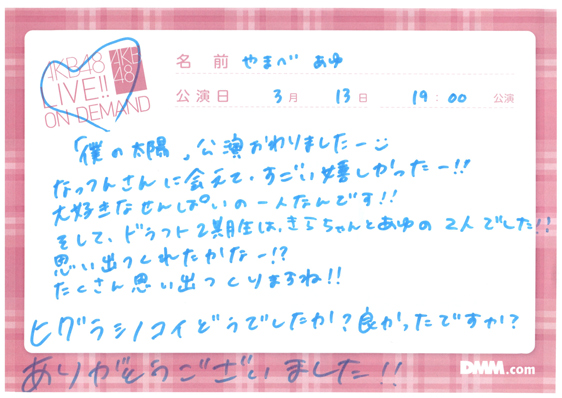 AKB48
LIVE!!
ON DEMAND
AKB
48
名 前 やまべ あゆ
公演日 3月 13日 19:00 公演
「僕の太陽」公演おわりましたー
なっつんさんに会えて、すごい嬉しかったー!!
大好きなせんぱいの一人なんです!!
そして、ドラフト2期生は、きらちゃんとあゆの2人でした!!
思い出つくれたかなー!?
たくさん思い出つくりますね!!
ヒグラシノコイどうでしたか?良かったですか?
ありがとうございました!!
DMM.com